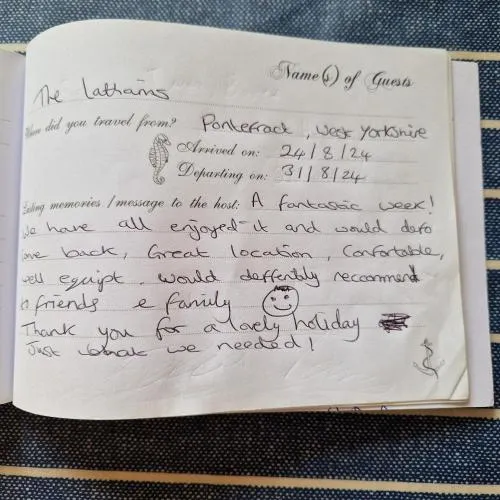 Name(s) of Guests
The Lathams
did you travel from? Pontefract, West Yorkshire
Arrived on: 24/8/24
Departing on: 31/8/24
Lasting memories / message to the host: A fantastic week!
We have all enjoyed it and would defo
come back, Great location, Confortable,
well equipt. would deffently reccommend
to friends & family
Thank you for a lovely holiday
Just what we needed!